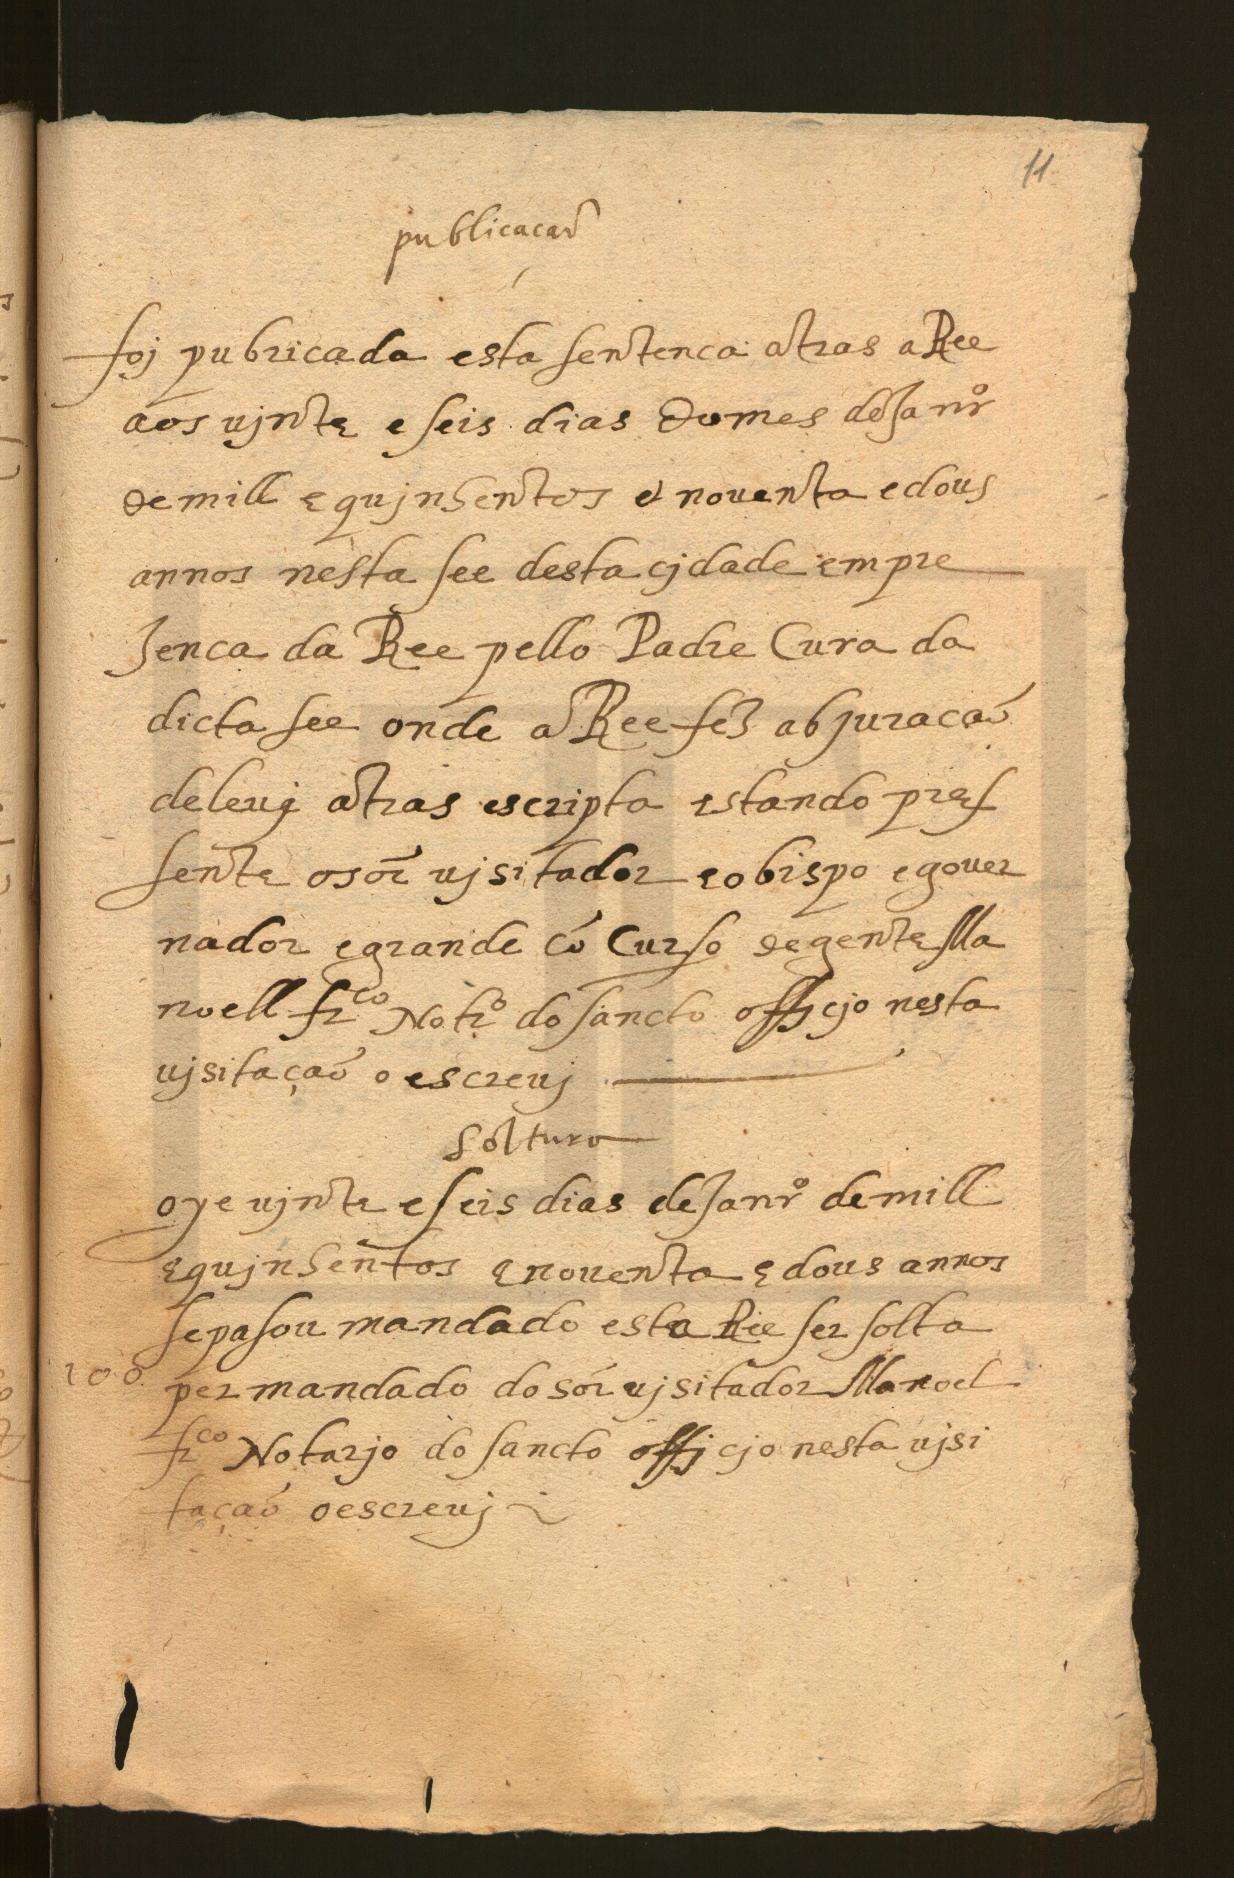 11
publicacaõ
foj pubricada esta sentenca atras a Ree
aos vjnte e seis dias do mes de Janrº
de mill e qujnhentos e noventa e dous
annos nesta see desta cjdade em pre
senca da Ree pello Padre Cura da
dicta see onde a Ree fez abjuracaõ
de levj atras escripta estando pres
sente o sõr vjsitador e o bispo e gover
nador e grande cõ Curso de gente Ma
noell frco Notrº do sancto officjo nesta
vjsitaçaõ o escrevj
soltura
oye vjnte e seis dias de Janrº de mill
e qujnhentos e noventa e dous annos
se pasou mandado esta Ree ser solta
per mandado do sõr vjsitador Manoel
frco Notarjo do sancto officjo nesta vjsi
taçaõ o escrevj